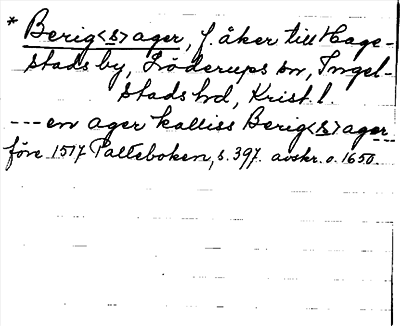 * Berig<s>ager, f. åker till Hage-
stads by, Löderups sn, Ingel-
stads hd, Krist. l.
--- en ager kalliss Berig<s>ager
före 1517 Palteboken, s. 397. avskr. o. 1650.